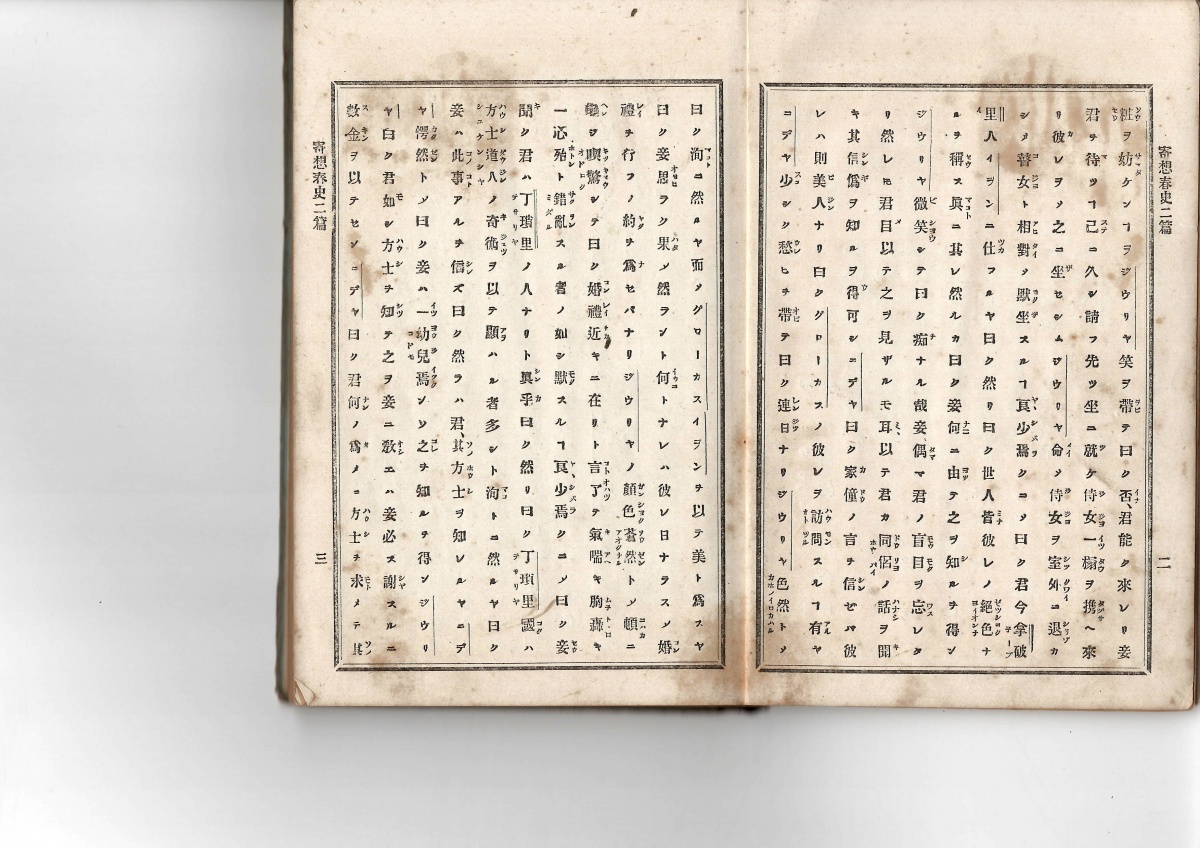 寄想春史二篇
二
粧ヲ妨ケンヿヲジウリヤ笑ヲ帶テ曰ク否、君能ク來レリ妾
君ヲ待ツヿ已ニ久シ請フ先ツ坐ニ就ケ侍女一榻ヲ携ヘ來
リ彼レヲ乄之ニ坐セシムジウリヤ命乄侍女ヲ室外ニ退カ
シメ瞽女ト相對乄默坐スルヿ良少焉クニ乄曰ク君今拿破
里人イヲンニ仕フルヤ曰ク然リ曰ク世人皆彼レノ絕色ナ
ルヲ稱ス眞ニ其レ然ルカ曰ク妾何ニ由テ之ヲ知ルヲ得ン
ジウリヤ微笑シテ曰ク痴ナル哉妾、偶マ君ノ盲目ヲ忘レタ
リ然レ𪜈君目以テ之ヲ見ザルモ耳以テ君カ同侶ノ話ヲ聞
キ其信僞ヲ知ルヲ得可シニデヤ曰ク家僮ノ言チ信ゼバ彼
レハ則美人ナリ曰クグローカスノ彼レヲ訪問スルヿ有ヤ
ニデヤ少シク愁ヒチ帶テ曰ク連日ナリジウリヤ色然ト乄
曰ク洵ニ然ルヤ而乄グローカスイヲンチ以テ美ト爲スヤ
曰ク妾思ラク果乄然ラント何トナレハ彼レ日ナラス乄婚
禮チ行フノ約ヲ爲セバナリジウリヤノ顏色蒼然ト乄頓ニ
變ジ喫驚シテ曰ク婚禮近キニ在リト言了テ氣喘キ胸轟キ
一心殆ト錯亂スル者ノ如シ默スルヿ良少焉クニ乄曰ク妾
聞ク君ハ丁瑣里ノ人ナリト眞乎曰ク然リ曰ク丁瑣里國ハ
方士道人ノ奇術ヲ以テ顯ハル者多シト洵トニ然ルヤ曰ク
妾ハ此事アルチ信ズ曰ク然ラハ君、其方士ヲ知レルヤニデ
ヤ愕然ト乄曰ク妾ハ一幼兒焉ンソ之チ知ルチ得ンジウリ
ヤ曰ク君如シ方士チ知テ之ヲ妾ニ敎エハ妾必ス謝スルニ
數金ヲ以テセンニデヤ曰ク君何ノ爲メニ方士チ求メテ其
寄想春史二篇
三